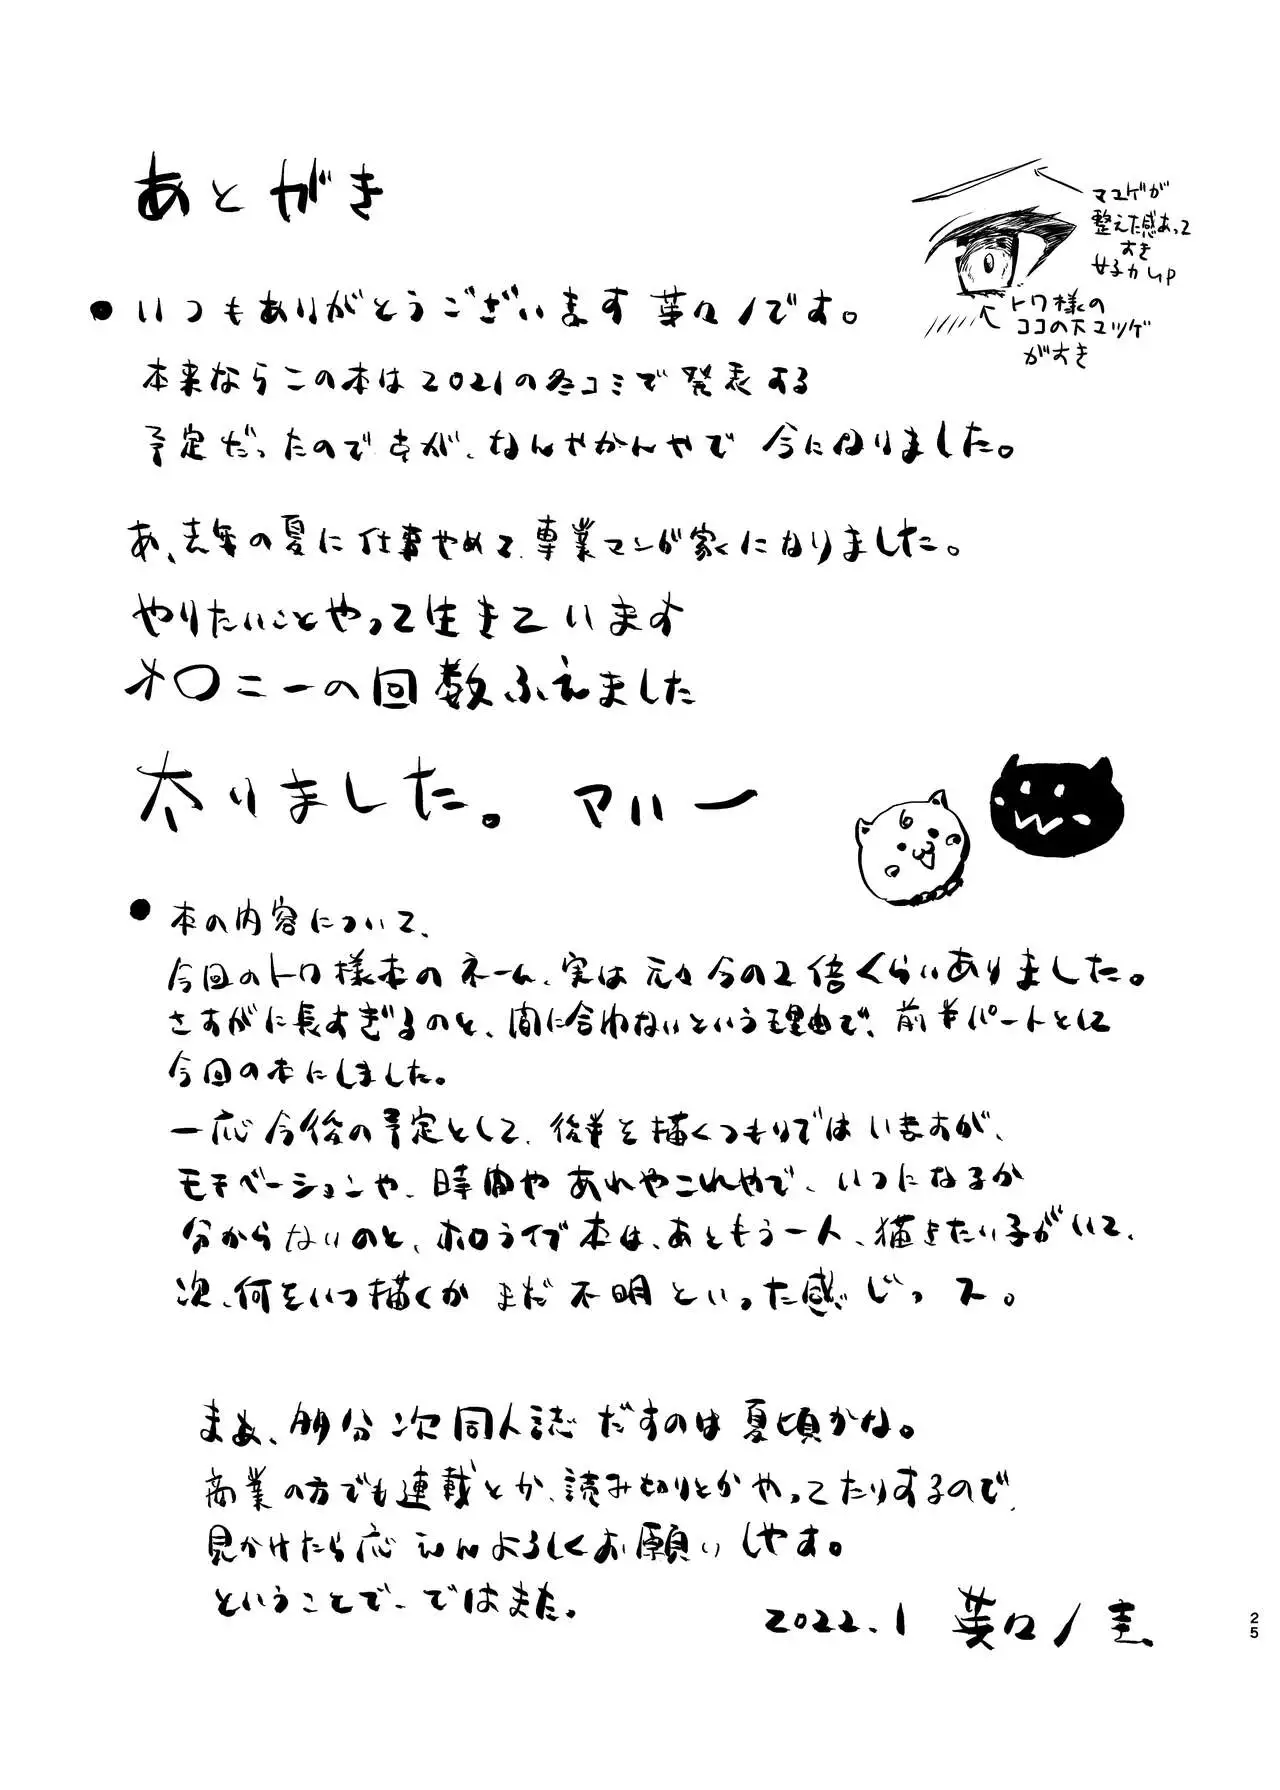 あとがき
マユゲが
整えた感あって
すき
女子力UP
トワ様の
ココの下マツゲ
がすき
●いつもありがとうございます 葉々ノです。
本来ならこの本は2021の冬コミで発表する
予定だったのですが、なんやかんやで 今になりました。
あ、去年の夏に仕事やめて、専業マンガ家になりました。
やりたいことやって生きています
オ〇ニーの回数ふえました
太りました。 マハー
●本の内容について、
今回のトワ様本のネーム、実は元々今の2倍くらいありました。
さすがに長すぎるのと、間に合わないという理由で、前半パートとして
今回の本にしました。
一応今後の予定として、後半を描くつもりではいますが、
モチベーションや、時間やあれやこれやで、いつになるか
分からないのと、ホロライブ本は、あともう一人、描きたい子がいて、
次、何をいつ描くか まだ不明といった感じっス。
まぁ、多分次同人誌だすのは夏頃かな。
商業の方でも連載とか、読み切りとかやってたりするので、
見かけたら応えんよろしくお願いしやす。
ということで、ではまた。
2022.1 葉々ノ 圭
25